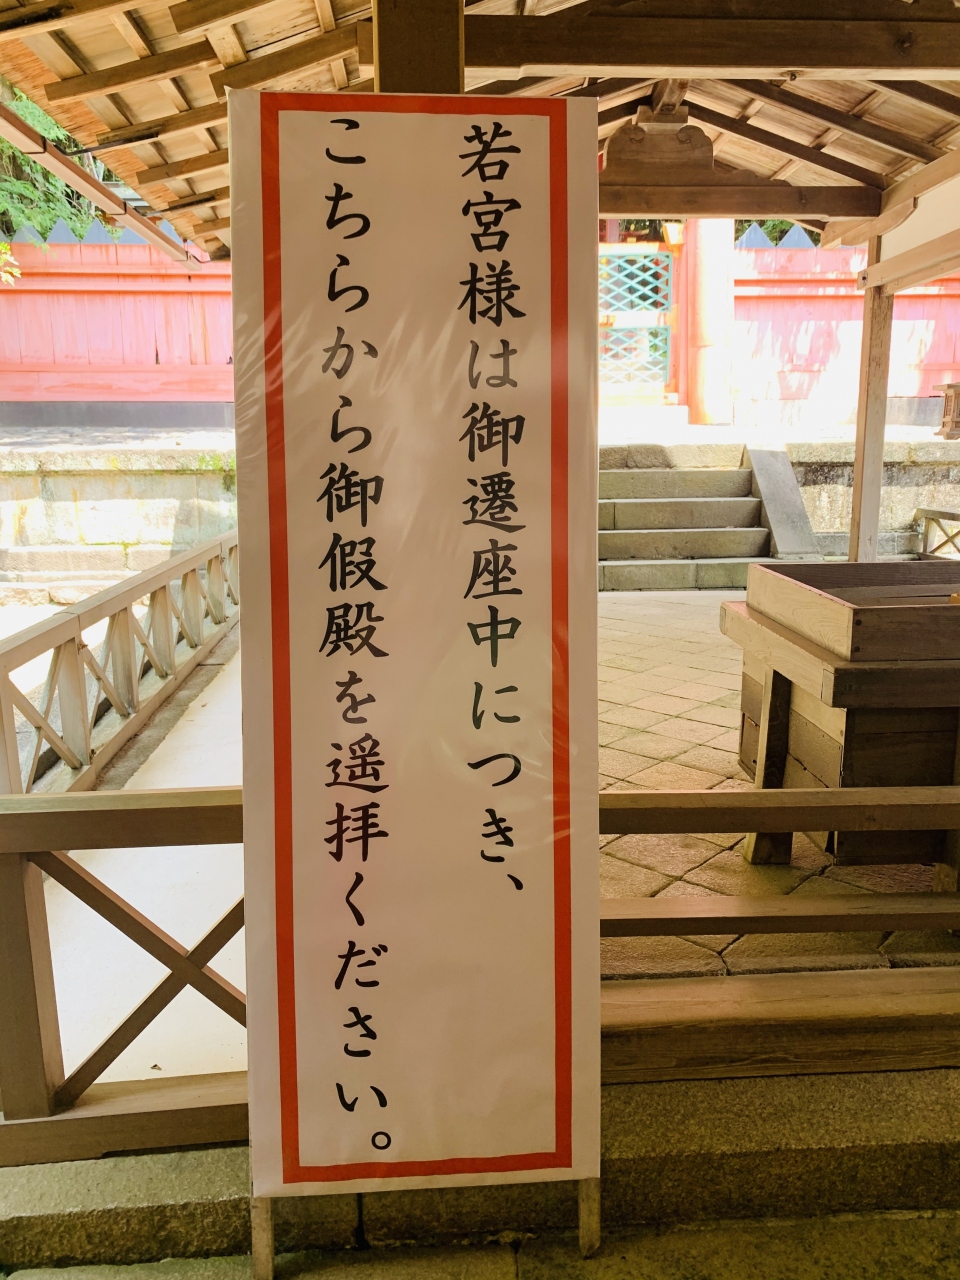 若宮様は御遷座中につき、
こちらから御假殿を遥拝ください。